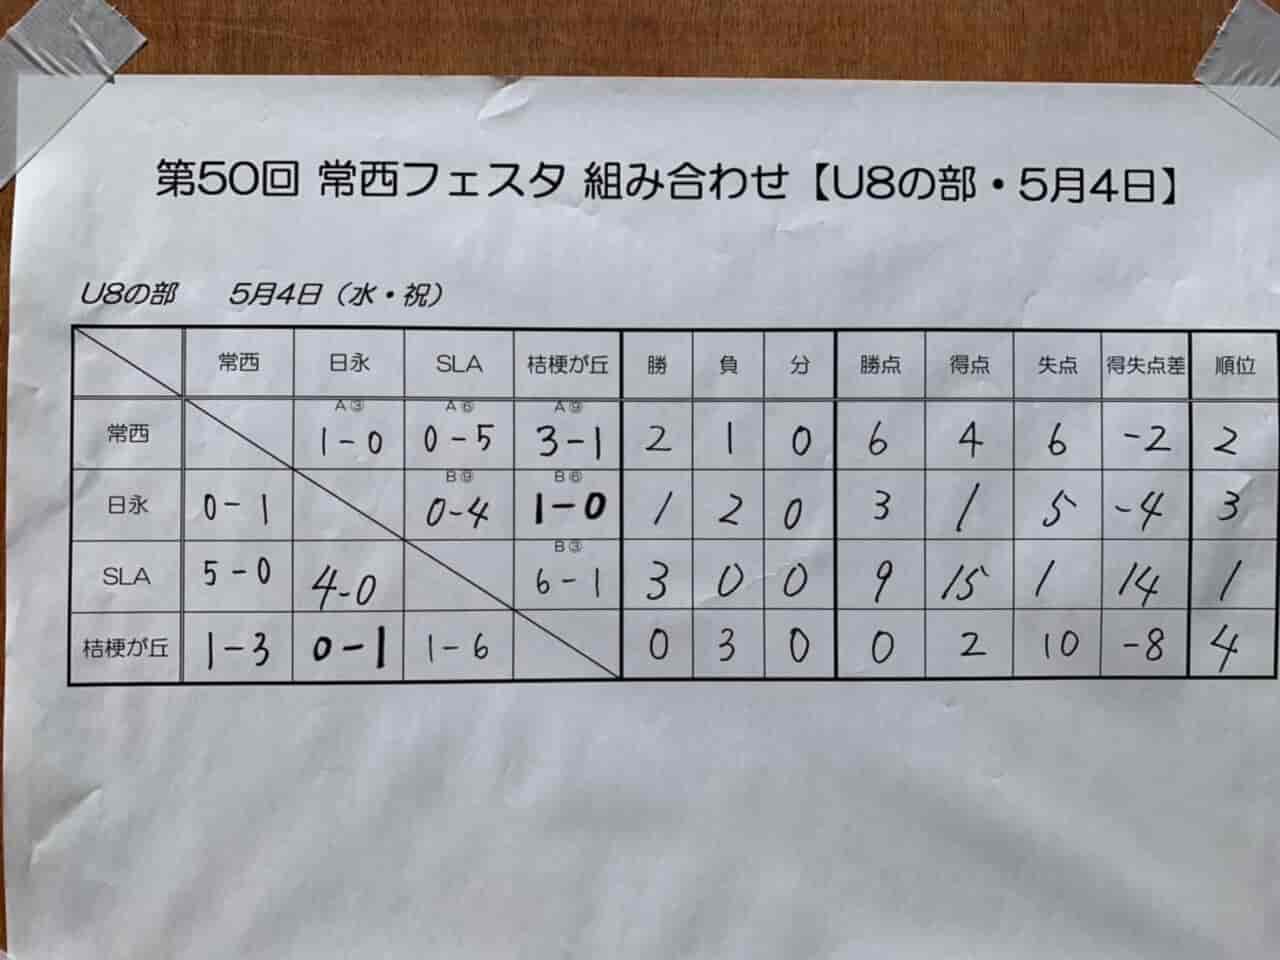 第50回 常西フェスタ 組み合わせ【U8の部・5月4日】
U8の部 5月4日（水・祝）
常西 日永 SLA 桔梗が丘 勝 負 分 勝点 得点 失点 得失点差 順位
A③ A⑥ A⑨
常西 1-0 0-5 3-1 2 1 0 6 4 6 -2 2
B⑨ B⑥
日永 0-1 0-4 1-0 1 2 0 3 1 5 -4 3
B③
SLA 5-0 4-0 6-1 3 0 0 9 15 1 14 1
桔梗が丘 1-3 0-1 1-6 0 3 0 0 2 10 -8 4